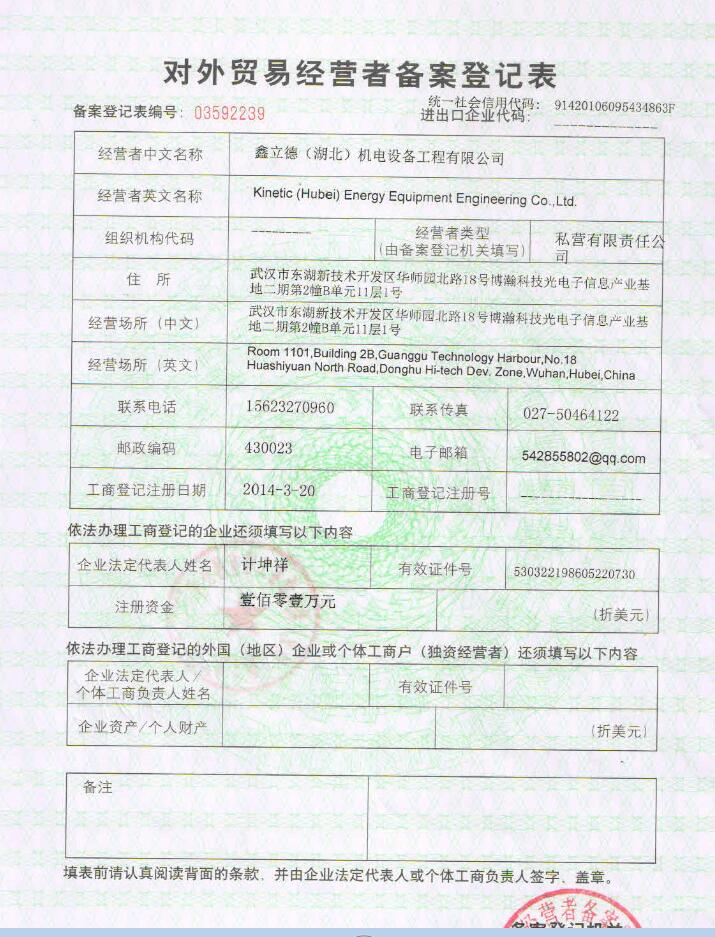 对外贸易经营者备案登记表
统一社会信用代码： 91420106095434863F
备案登记表编号： 03592239 进出口企业代码： -------------
经营者中文名称 鑫立德（湖北）机电设备工程有限公司
经营者英文名称 Kinetic (Hubei) Energy Equipment Engineering Co.,Ltd.
组织机构代码 --------- 经营者类型 私营有限责任公
(由备案登记机关填写) 司
住 所 武汉市东湖新技术开发区华师园北路18号博瀚科技光电子信息产业基
地二期第2幢B单元11层1号
经营场所（中文） 武汉市东湖新技术开发区华师园北路18号博瀚科技光电子信息产业基
地二期第2幢B单元11层1号
经营场所（英文） Room 1101,Building 2B,Guanggu Technology Harbour,No.18
Huashiyuan North Road,Donghu Hi-tech Dev. Zone,Wuhan,Hubei,China
联系电话 15623270960 联系传真 027-50464122
邮政编码 430023 电子邮箱 542855802@qq.com
工商登记注册日期 2014-3-20 工商登记注册号 ------------------
依法办理工商登记的企业还须填写以下内容
企业法定代表人姓名 计坤祥 有效证件号 530322198605220730
注册资金 壹佰零壹万元 (折美元)
依法办理工商登记的外国（地区）企业或个体工商户（独资经营者）还须填写以下内容
企业法定代表人/
个体工商负责人姓名 有效证件号
企业资产/个人财产 (折美元)
备注
填表前请认真阅读背面的条款，并由企业法定代表人或个体工商负责人签字、盖章。
经营者备案
备案登记机关